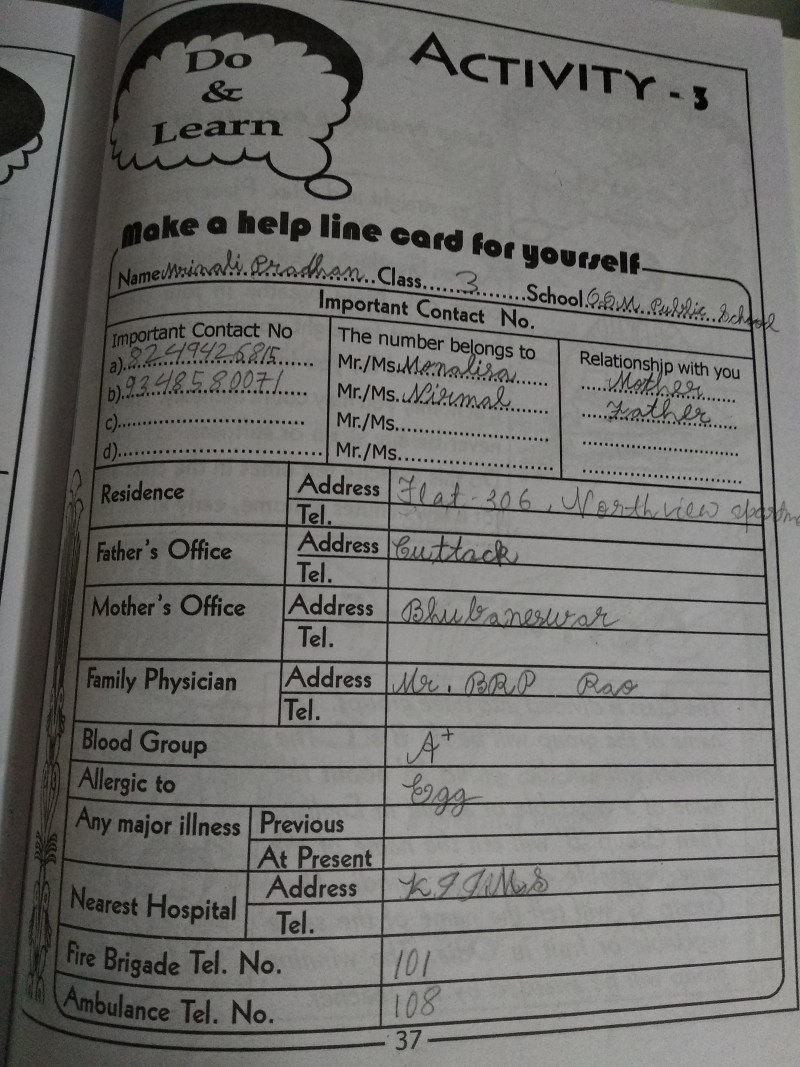 Do
&
Learn
ACTIVITY - 3
Make a help line card for yourself
Name Mrinali Pradhan Class 3 School O.D.M. Public School
Important Contact No.
Important Contact No The number belongs to Relationship with you
a) 8249426815 Mr./Ms. Monalisa Mother
b) 9348580071 Mr./Ms. Nirmal Father
c) Mr./Ms.
d) Mr./Ms.
Residence Address Flat-306, Northview
Tel.
Father's Office Address Cuttack
Tel.
Mother's Office Address Bhubaneswar
Tel.
Family Physician Address Mr. BRP Rao
Tel.
Blood Group A+
Allergic to Egg
Any major illness Previous
At Present
Nearest Hospital Address
Tel.
Fire Brigade Tel. No. 101
Ambulance Tel. No. 108
37